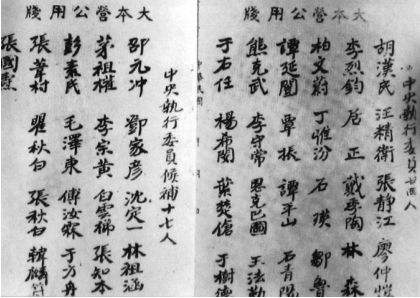 大本營公用牋
中央執行委員廿四人
胡漢民 汪精衛 張静江 廖仲愷
李烈鈞 居正 戴季陶 林森
柏文蔚 丁惟汾 石瑛 鄒魯
譚延闓 覃振 譚平山 石青陽
熊克武 李守常 恩克巴圖 王法勤
于右任 楊希閔 葉楚傖 于樹德
中華民國
大本營公用牋
中央執行委員候補十七人
邵元冲 鄧家彥 沈定一 林祖涵
茅祖權 李宗黃 白雲梯 張知本
彭素民 毛澤東 傅汝霖 于方舟
張葦村 瞿秋白 張秋白 韓麟符
張國燾